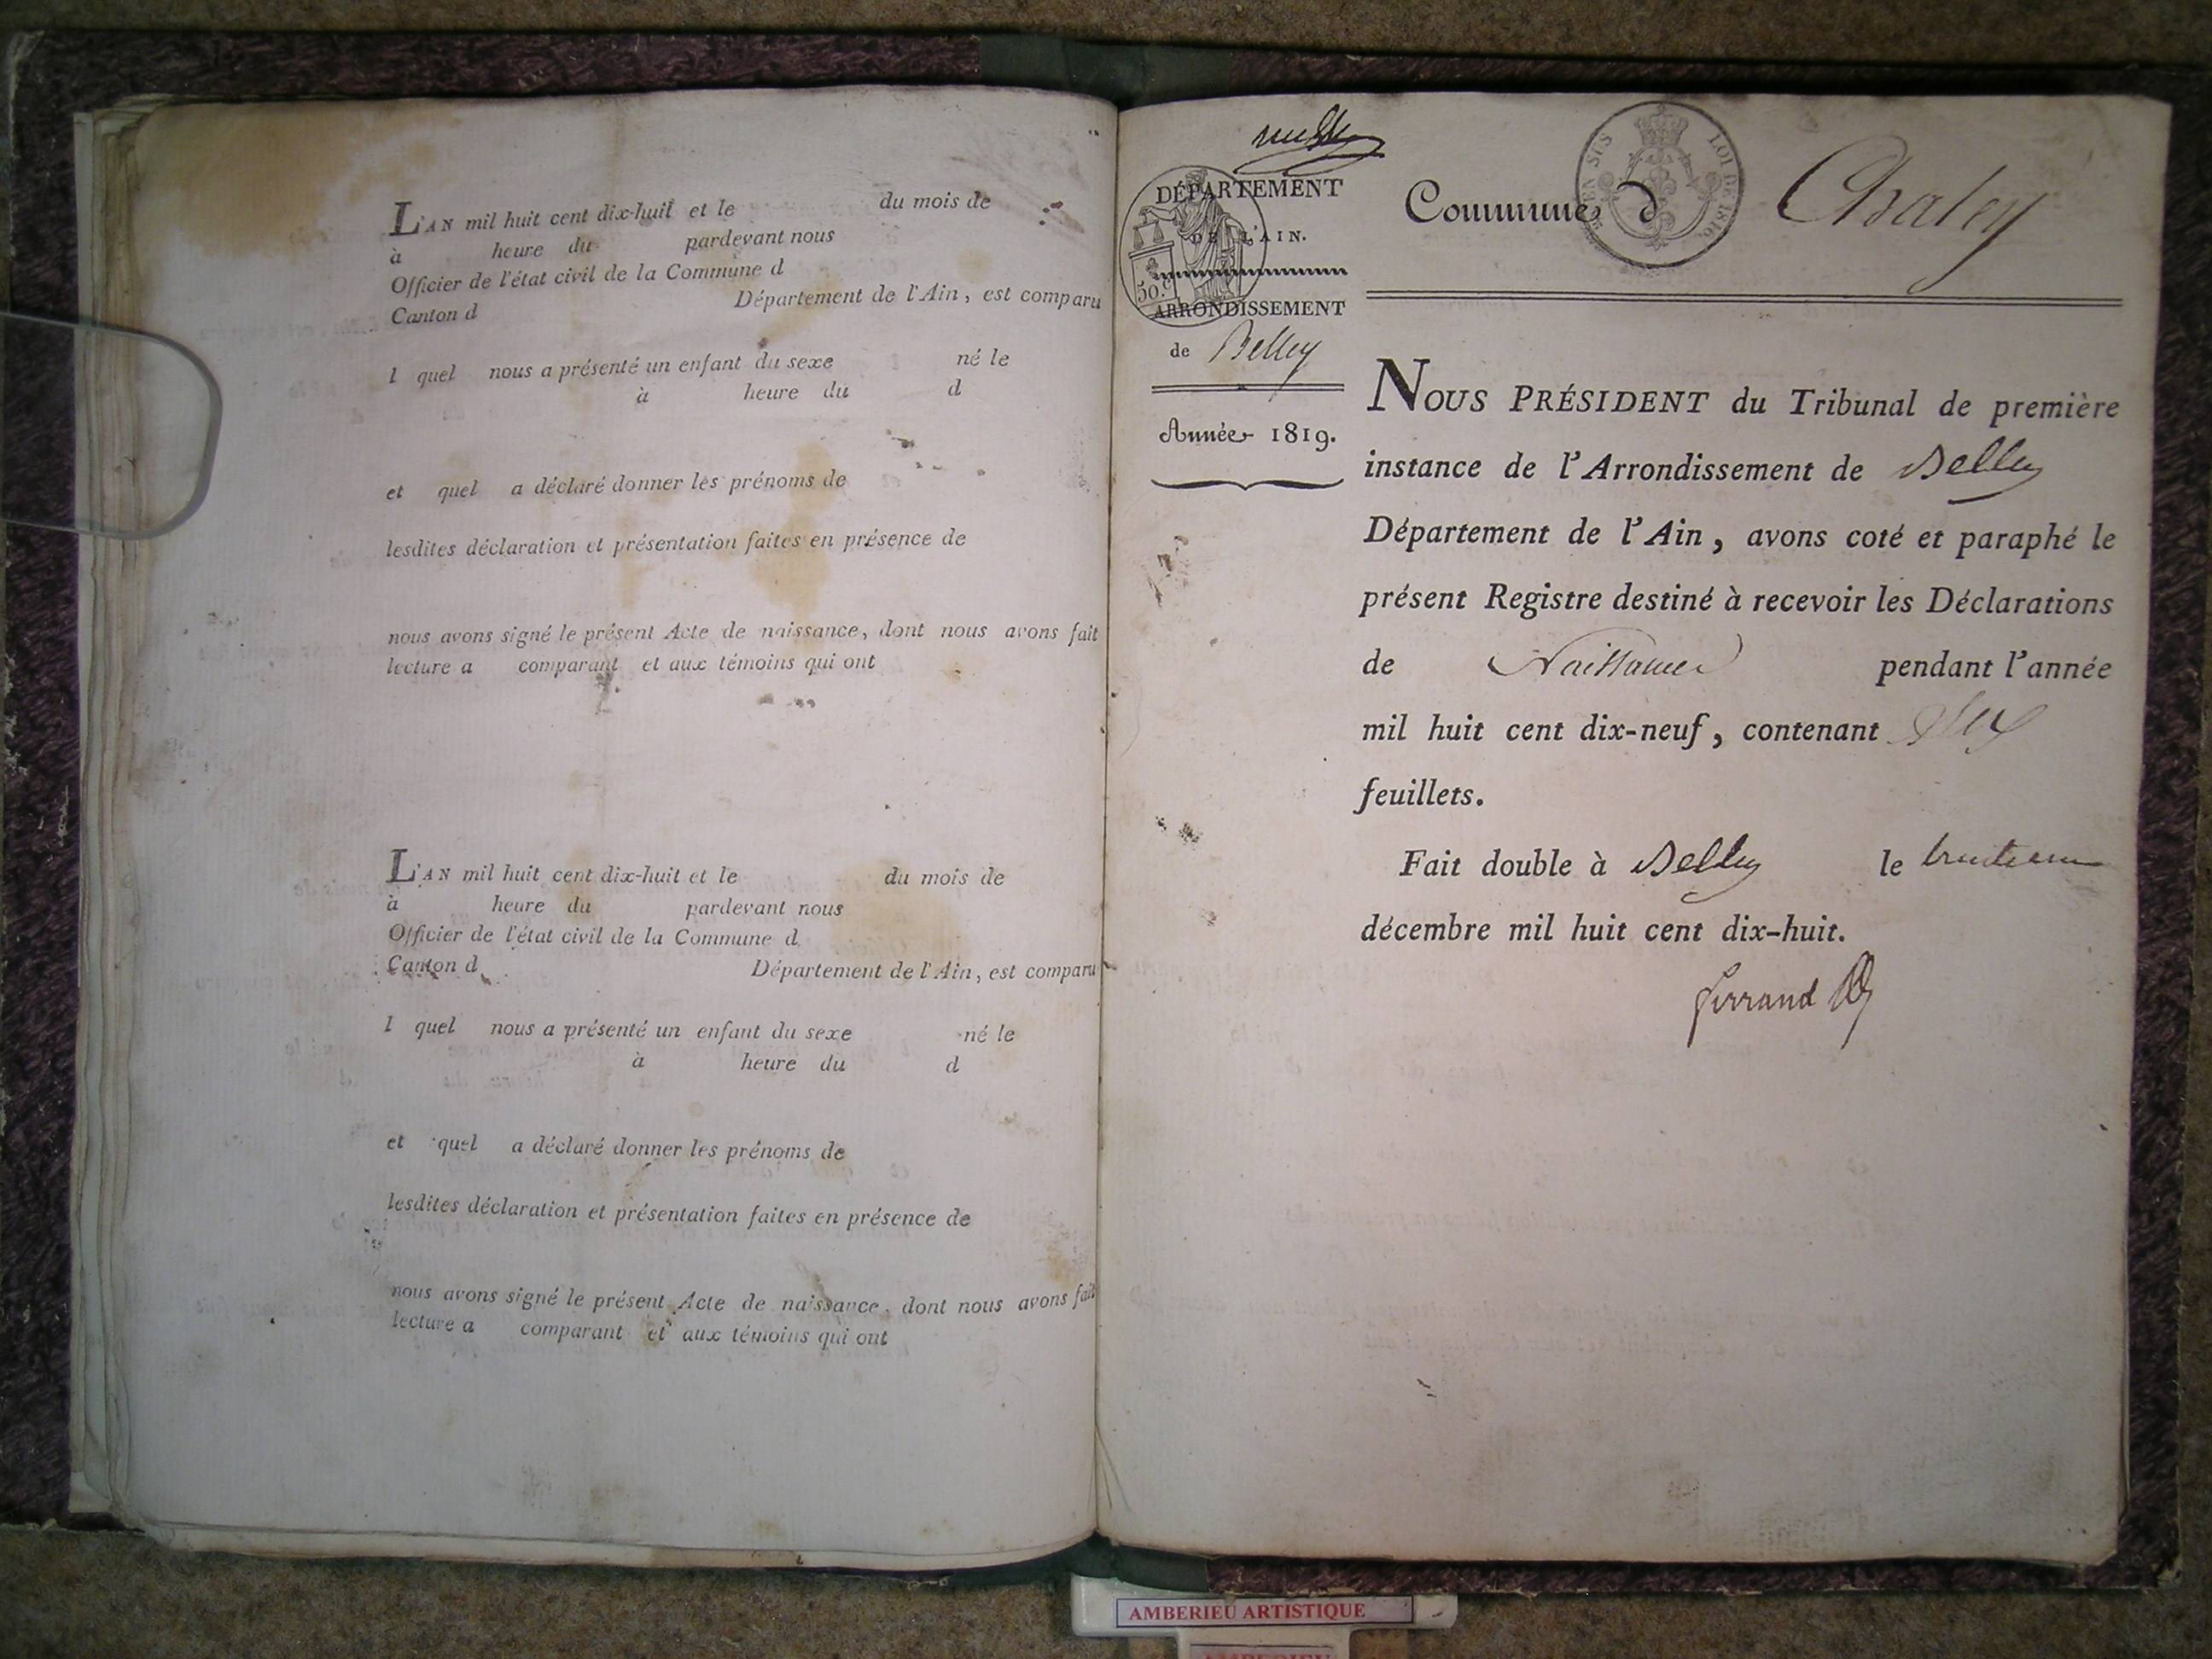 L'AN mil huit cent dix-huit et le du mois de
à heure du pardevant nous
Officier de l'état civil de la Commune d
Canton d Département de l'Ain, est comparu
l quel nous a présenté un enfant du sexe né le
à heure du d
et quel a déclaré donner les prénoms de
lesdites déclaration et présentation faites en présence de
nous avons signé le présent Acte de naissance, dont nous avons fait
lecture a comparant et aux témoins qui ont
L'AN mil huit cent dix-huit et le du mois de
à heure du pardevant nous
Officier de l'état civil de la Commune d
Canton d Département de l'Ain, est comparu
l quel nous a présenté un enfant du sexe né le
à heure du d
et quel a déclaré donner les prénoms de
lesdites déclaration et présentation faites en présence de
nous avons signé le présent Acte de naissance, dont nous avons fait
lecture a comparant et aux témoins qui ont
DÉPARTEMENT
DE L'AIN.
50.c
ARRONDISSEMENT
de Belley
Année 1819.
Commune d Chaley
LOI DE 1816.
NOUS PRÉSIDENT du Tribunal de première
instance de l'Arrondissement de Belley
Département de l'Ain, avons coté et paraphé le
présent Registre destiné à recevoir les Déclarations
de Naissances pendant l'année
mil huit cent dix-neuf, contenant six
feuillets.
Fait double à Belley le trente un
décembre mil huit cent dix-huit.
ferrand
AMBERIEU ARTISTIQUE
AMBERIEU